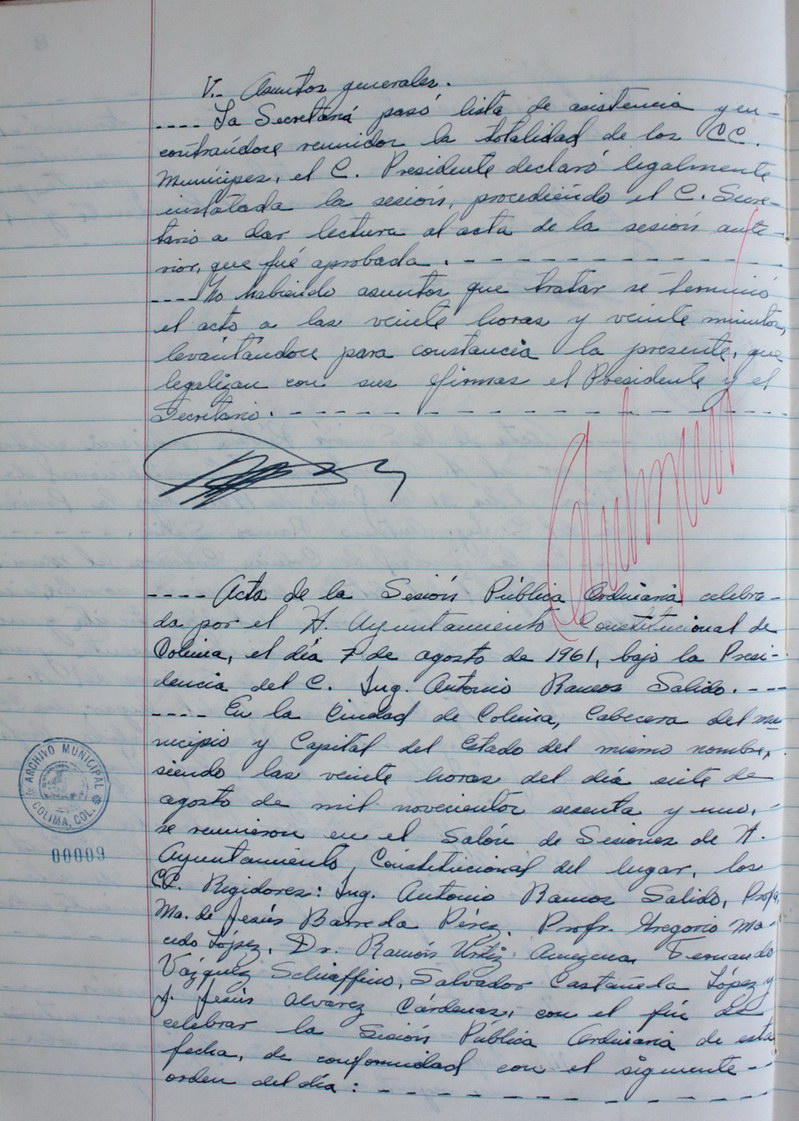 V.- Asuntos generales.
---- La Secretaría pasó lista de asistencia y en-
contrándose reunidos la totalidad de los CC.
Munícipes, el C. Presidente declaró legalmente
instalada la sesión, procediendo el C. Secre-
tario a dar lectura al acta de la sesión ante-
rior, que fué aprobada. - - - - - - - - - - -
---- No habiendo asuntos que tratar se terminó
el acto a las veinte horas y veinte minutos,
levantándose para constancia la presente, que
legalizan con sus firmas el Presidente y el
Secretario. - - - - - - - - - - - - - - - -
---- Acta de la Sesión Pública Ordinaria celebra-
da por el H. Ayuntamiento Constitucional de
Colima, el día 7 de agosto de 1961, bajo la Presi-
dencia del C. Ing. Antonio Ramos Salido. - - -
---- En la Ciudad de Colima, Cabecera del mu-
nicipio y Capital del Estado del mismo nombre,
siendo las veinte horas del día siete de
agosto de mil novecientos sesenta y uno,
se reunieron en el Salón de Sesiones de H.
Ayuntamiento Constitucional del lugar, los
CC. Regidores: Ing. Antonio Ramos Salido, Profa.
Ma. de Jesús Barreda Pérez, Profr. Gregorio Ma-
cedo López, Dr. Ramón Ortiz Amezcua, Fernando
Vázquez Schiaffino, Salvador Castañeda López y
J. Jesús Alvarez Cárdenas, con el fin de
celebrar la Sesión Pública Ordinaria de esta
fecha, de conformidad con el siguiente -
orden del día: - - - - - - - - - - - - -
ARCHIVO MUNICIPAL
COLIMA, COL.
00009